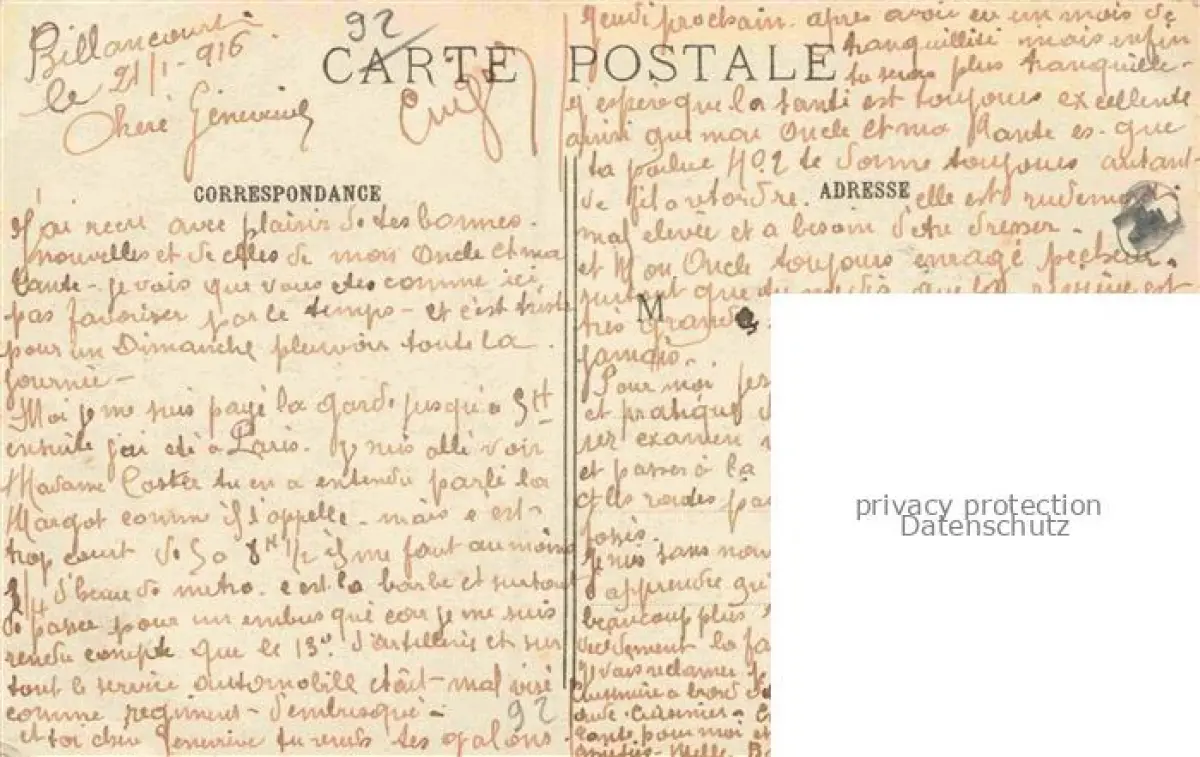 92
Billancourt
le 21/1-916
CARTE POSTALE
Chère Geneviève
CORRESPONDANCE
J'ai recu avec plaisir de tes bonnes.
nouvelles et de celles de mon Oncle et ma
Tante - je vois que vous etes comme ici
pas favoriser par le temps - et c'est triste
pour un Dimanche pleuvoir toute la
journée -
Moi je me suis payé la garde jusqu'à 5H
ensuite j'ai été à Paris. Je suis allé voir
Madame Coster tu en a entendu parlé la
Margot comme il l'appelle - mais c est
trop court de 5 a 8H 1/2 il me faut au moins
d'heure de metro. c est la barbe et surtout
de passer pour un embusqué car je me suis
rendu compte que le 13e d'artillerie et sur
tout le service automobile était mal visé
comme regiment d'embusqué -
et toi chère Geneviève tu rends tes galons
92
Jeudi prochain. apres avoir eu un mois de
tranquillité mais enfin
tu seras plus tranquille -
j espère que la santé est toujours excellente
ainsi que mon Oncle et ma Tante es-que
ta No 2 te donne toujours autant
de fil a retordre. elle est rudement
ADRESSE
mal elevée et a besoin d'etre dresser -
et Mon Oncle toujours enragé pecheur.
surtout que rivière est
M
très grande
jamais.
Pour moi
et pratique
1er examen
et passer à la
et les rondes
Je suis sans
d'apprendre qu'
beaucoup plus
decidement la
Je vais reclamer
privacy protection
Datenschutz